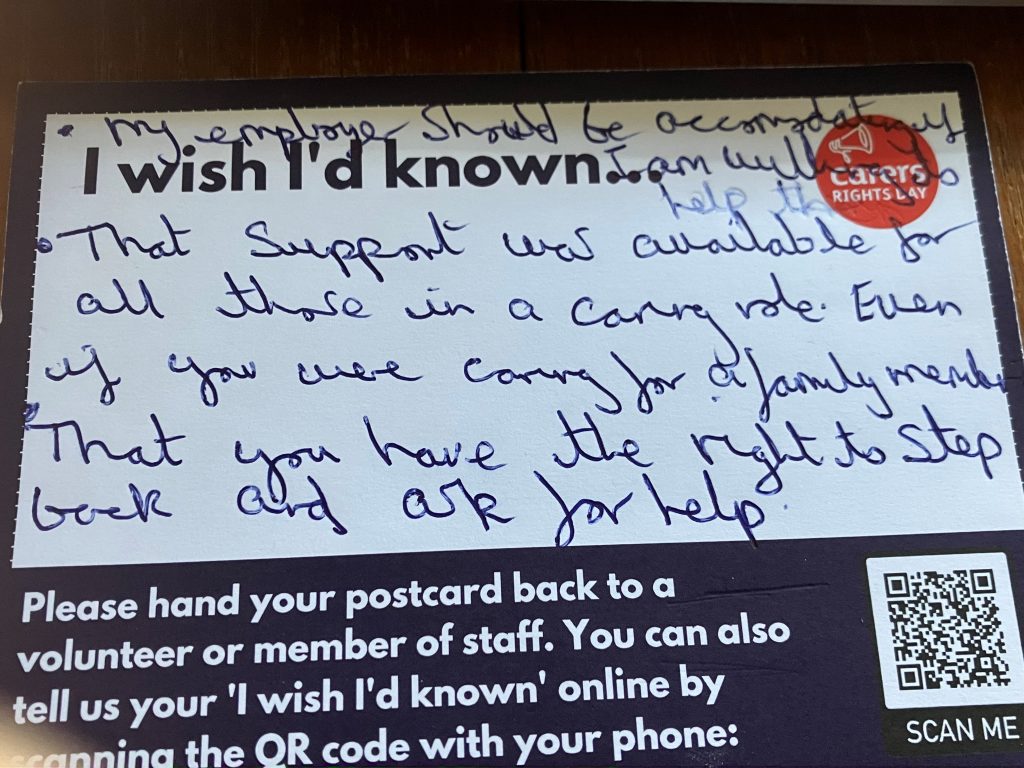 • My employer should be accomodating if
I wish I'd known...
I am willing to
help them
carers
RIGHTS DAY
• That Support was available for
all those in a caring role. Even
if you were caring for a family member
• That you have the right to Step
back and ask for help.
Please hand your postcard back to a
volunteer or member of staff. You can also
tell us your 'I wish I'd known' online by
scanning the QR code with your phone:
SCAN ME